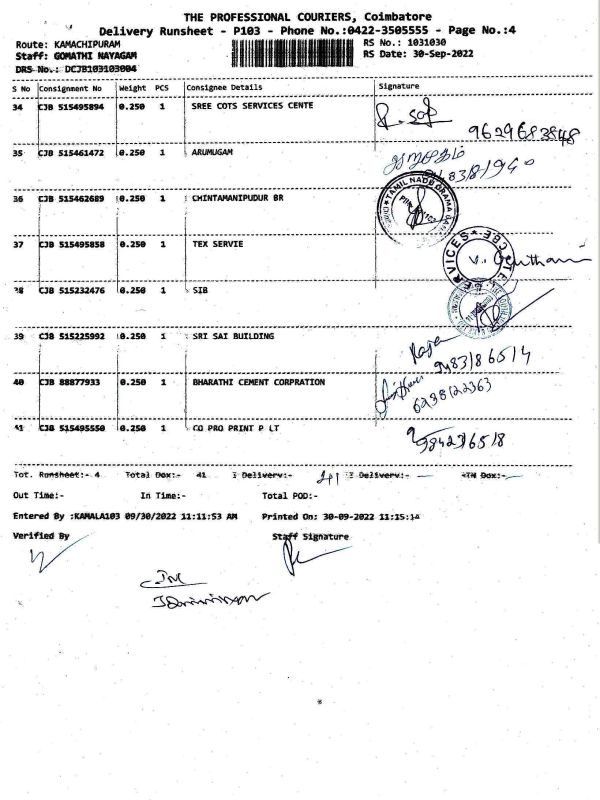 THE PROFESSIONAL COURIERS, Coimbatore
Delivery Runsheet - P103 - Phone No.:0422-3505555 - Page No.:4
Route: KAMACHIPURAM RS No.: 1031030
Staff: GOMATHI NAYAGAM RS Date: 30-Sep-2022
DRS No.: DCJB103103004
S No Consignment No Weight PCS Consignee Details Signature
34 CJB 515495894 0.250 1 SREE COTS SERVICES CENTE
9629683848
35 CJB 515461472 0.250 1 ARUMUGAM
ஆறுமுகம்
36 CJB 515462689 0.250 1 CHINTAMANIPUDUR BR
37 CJB 515495858 0.250 1 TEX SERVIE
38 CJB 515232476 0.250 1 SIB
39 CJB 515225992 0.250 1 SRI SAI BUILDING
40 CJB 88877933 0.250 1 BHARATHI CEMENT CORPRATION
6238122363
41 CJB 515495550 0.250 1 CO PRO PRINT P LT
Tot. Runsheet:- 4 Total Dox:- 41 I Delivery:- 41 I Delivery:- RTN Dox:-
Out Time:- In Time:- Total POD:-
Entered By :KAMALA103 09/30/2022 11:11:53 AM Printed On: 30-09-2022 11:15:14
Verified By Staff Signature